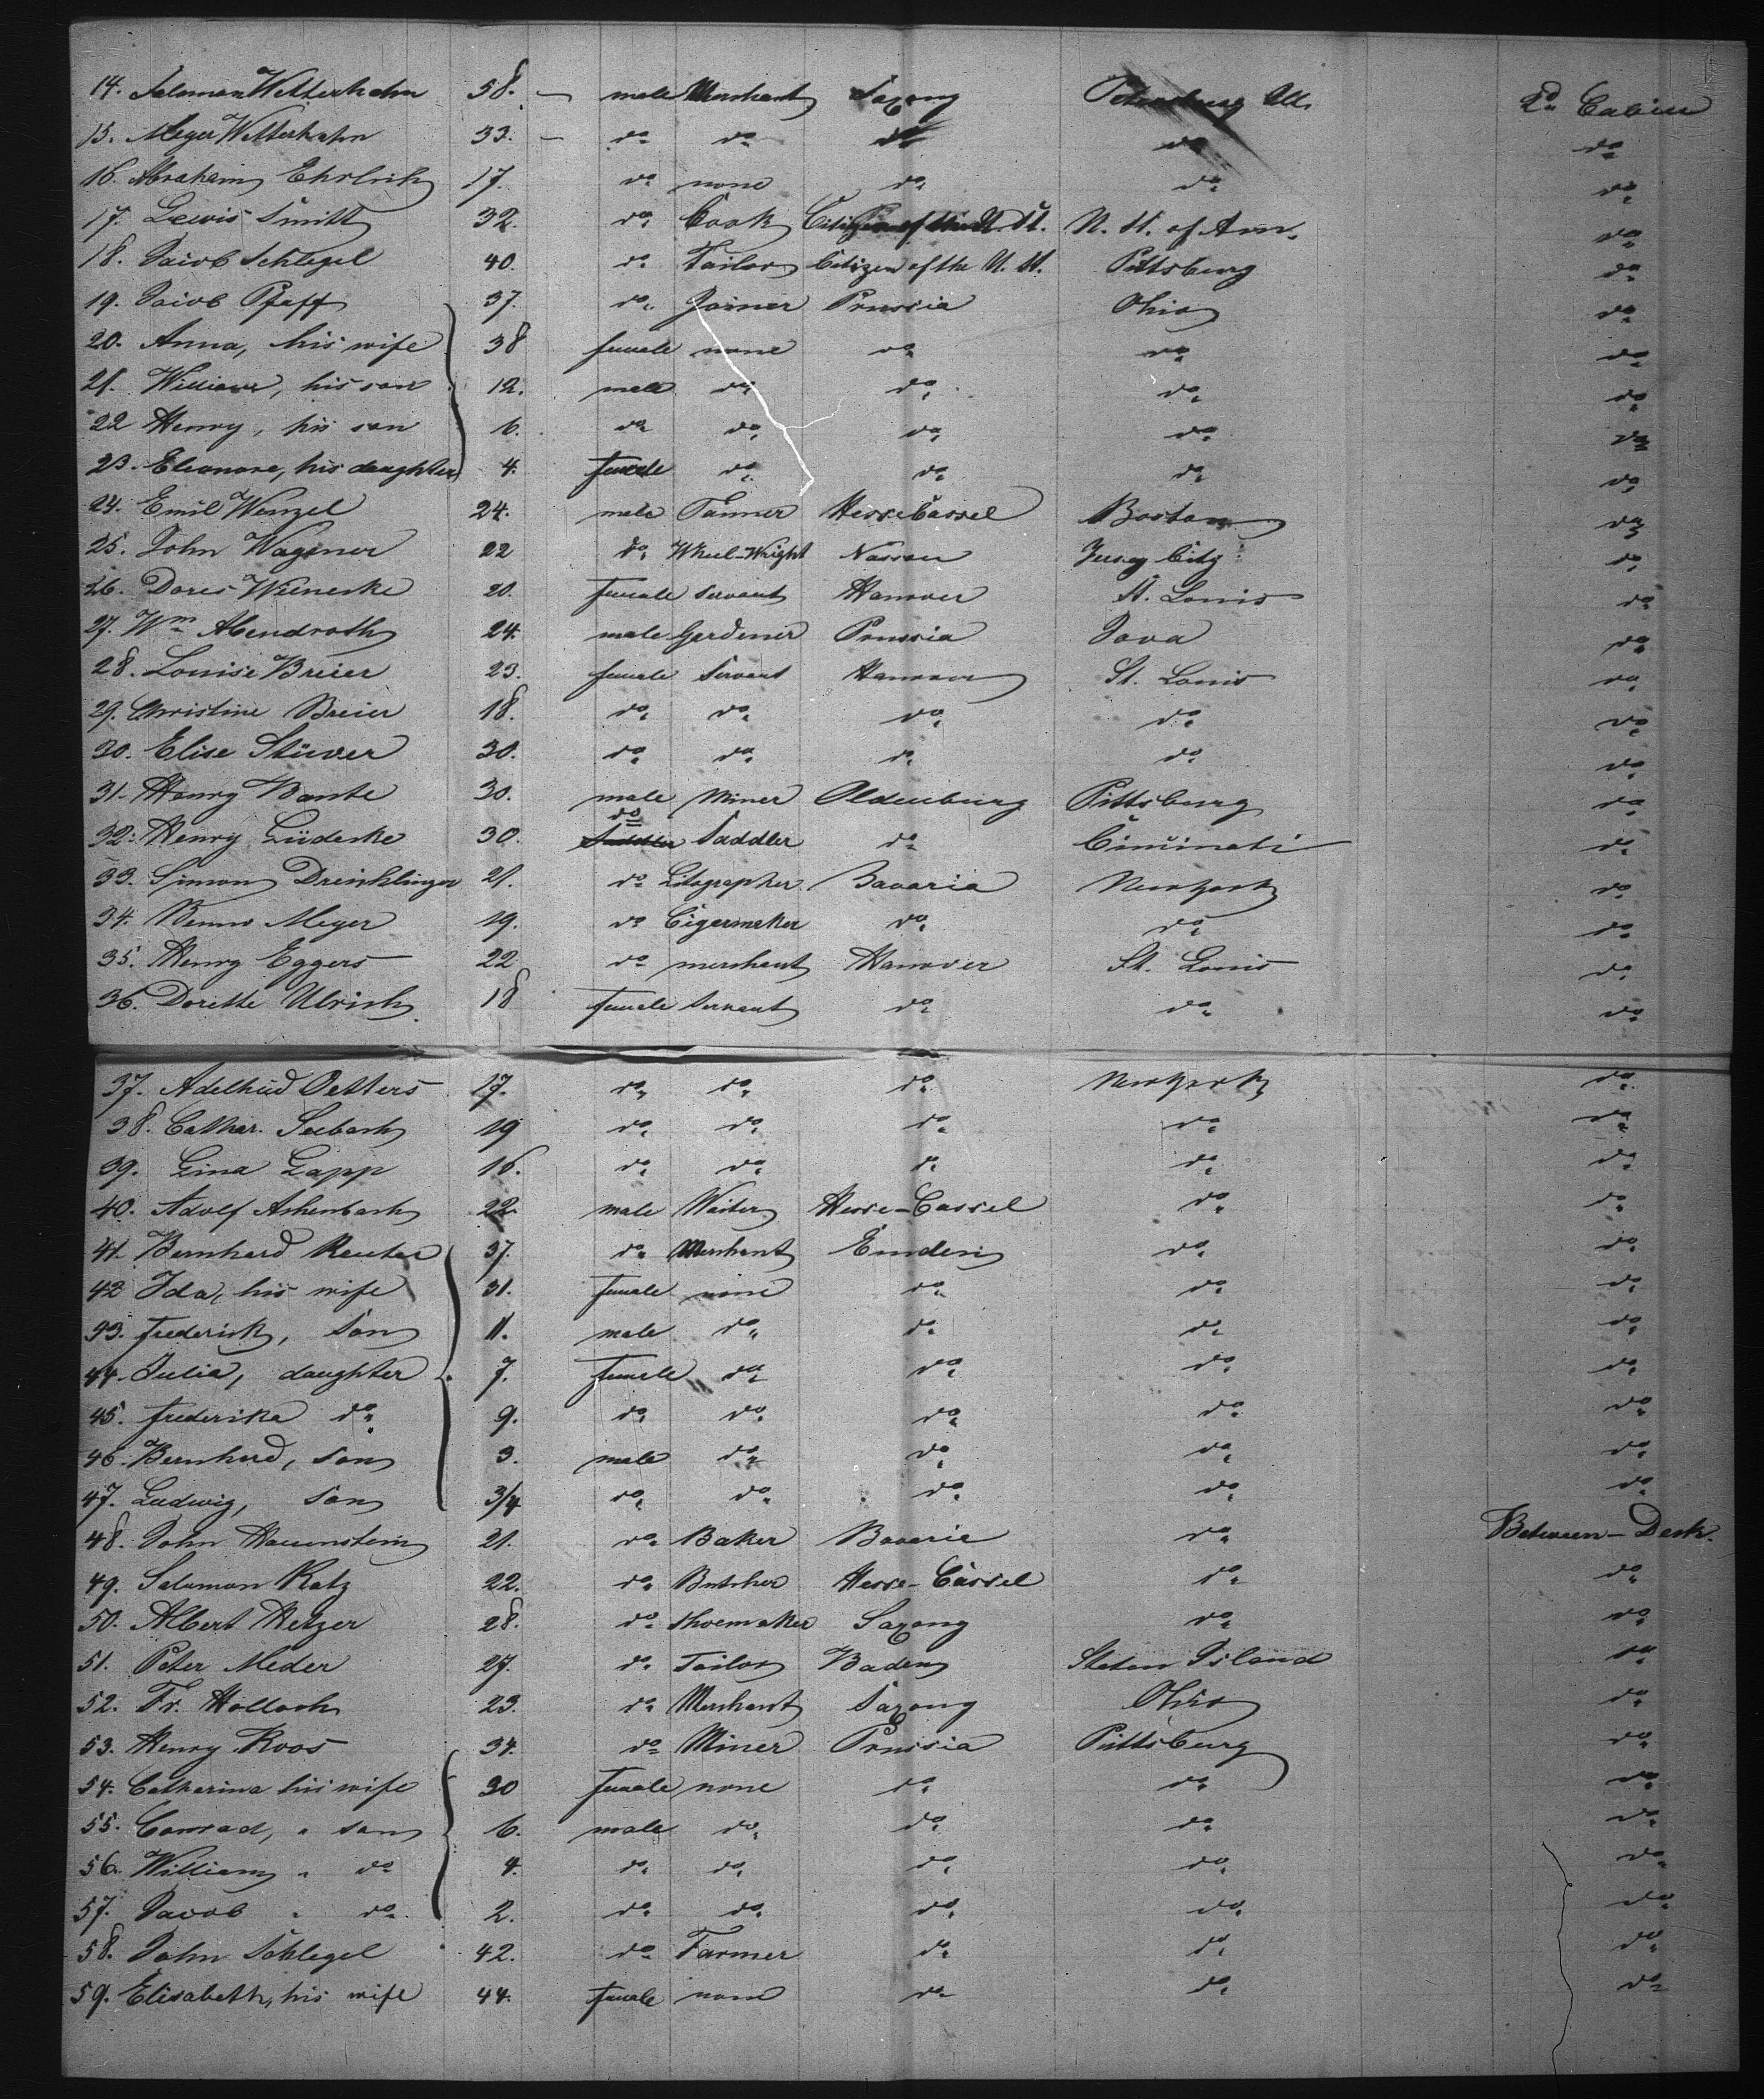 14. Salomon Wetterhahn 58. — male Merchant Saxony Petersburg Ill. 2d Cabin
15. Meyer Wetterhahn 33. — do do do do do
16. Abraham Ehrlich 17. do none do do do
17. Lewis Smitt 32. do Cook Citizen of the U. St. U. St. of Am. do
18. Jacob Schlegel 40. do Tailor Citizen of the U. St. Pittsburg do
19. Jacob Pfaff 37. do Joiner Prussia Ohio do
20. Anna, his wife 38 female none do do do
21. William, his son 12. male do do do do
22 Henry, his son 6. do do do do do
23. Eleonore, his daughter 4. female do do do do
24. Emil Wenzel 24. male Tanner Hesse Cassel Boston do
25. John Wagener 22 do Wheel-Wright Nassau Jersey City do
26. Dores Wienecke 20. female servant Hanover St. Louis do
27. Wm Abendroth 24. male Gardener Prussia Iova do
28. Louise Breier 23. female Servant Hanover St. Louis do
29. Christine Breier 18. do do do do do
30. Elise Stüver 30. do do do do do
31. Henry Bante 30. male Miner Oldenburg Pittsburg do
32. Henry Lüdecke 30. do Saddler do Cincinnati do
33. Simon Dreichlinger 21. do Litographer Bavaria New York do
34. Benno Meyer 19. do Cigarmaker do do do
35. Henry Eggers 22 do merchant Hanover St. Louis do
36. Dorette Ulrich 18 female Servant do do do
37. Adelheid Oetters 17. do do do New York do
38. Cathar. Seebach 19 do do do do do
39. Lina Lapp 16. do do do do do
40. Adolf Ashenbach 22. male Waiter Hesse-Cassel do do
41. Bernhard Reuter 37. do Merchant Emden do do
42 Ida, his wife 31. female none do do do
43. Frederick, Son 11. male do do do do
44. Julia, daughter 7. female do do do do
45. Frederika do 9. do do do do do
46. Bernhard, Son 3. male do do do do
47. Ludwig, Son 3/4 do do do do do
48. John Hauenstein 21. do Baker Bavaria do Between-Deck.
49. Salomon Katz 22. do Butcher Hesse-Cassel do do
50. Albert Hetzer 28. do Shoemaker Saxony do do
51. Peter Meder 27. do Tailor Baden Staten Island do
52. Fr. Hollach 23. do Merchant Saxony Ohio do
53. Henry Koos 34. do Miner Prussia Pittsburg do
54. Catharina his wife 30 female none do do do
55. Conrad, " son 6. male do do do do
56. William " do 4. do do do do do
57. Jacob " do 2. do do do do do
58. John Schlegel 42. do Farmer do do do
59. Elisabeth, his wife 44. female none do do do